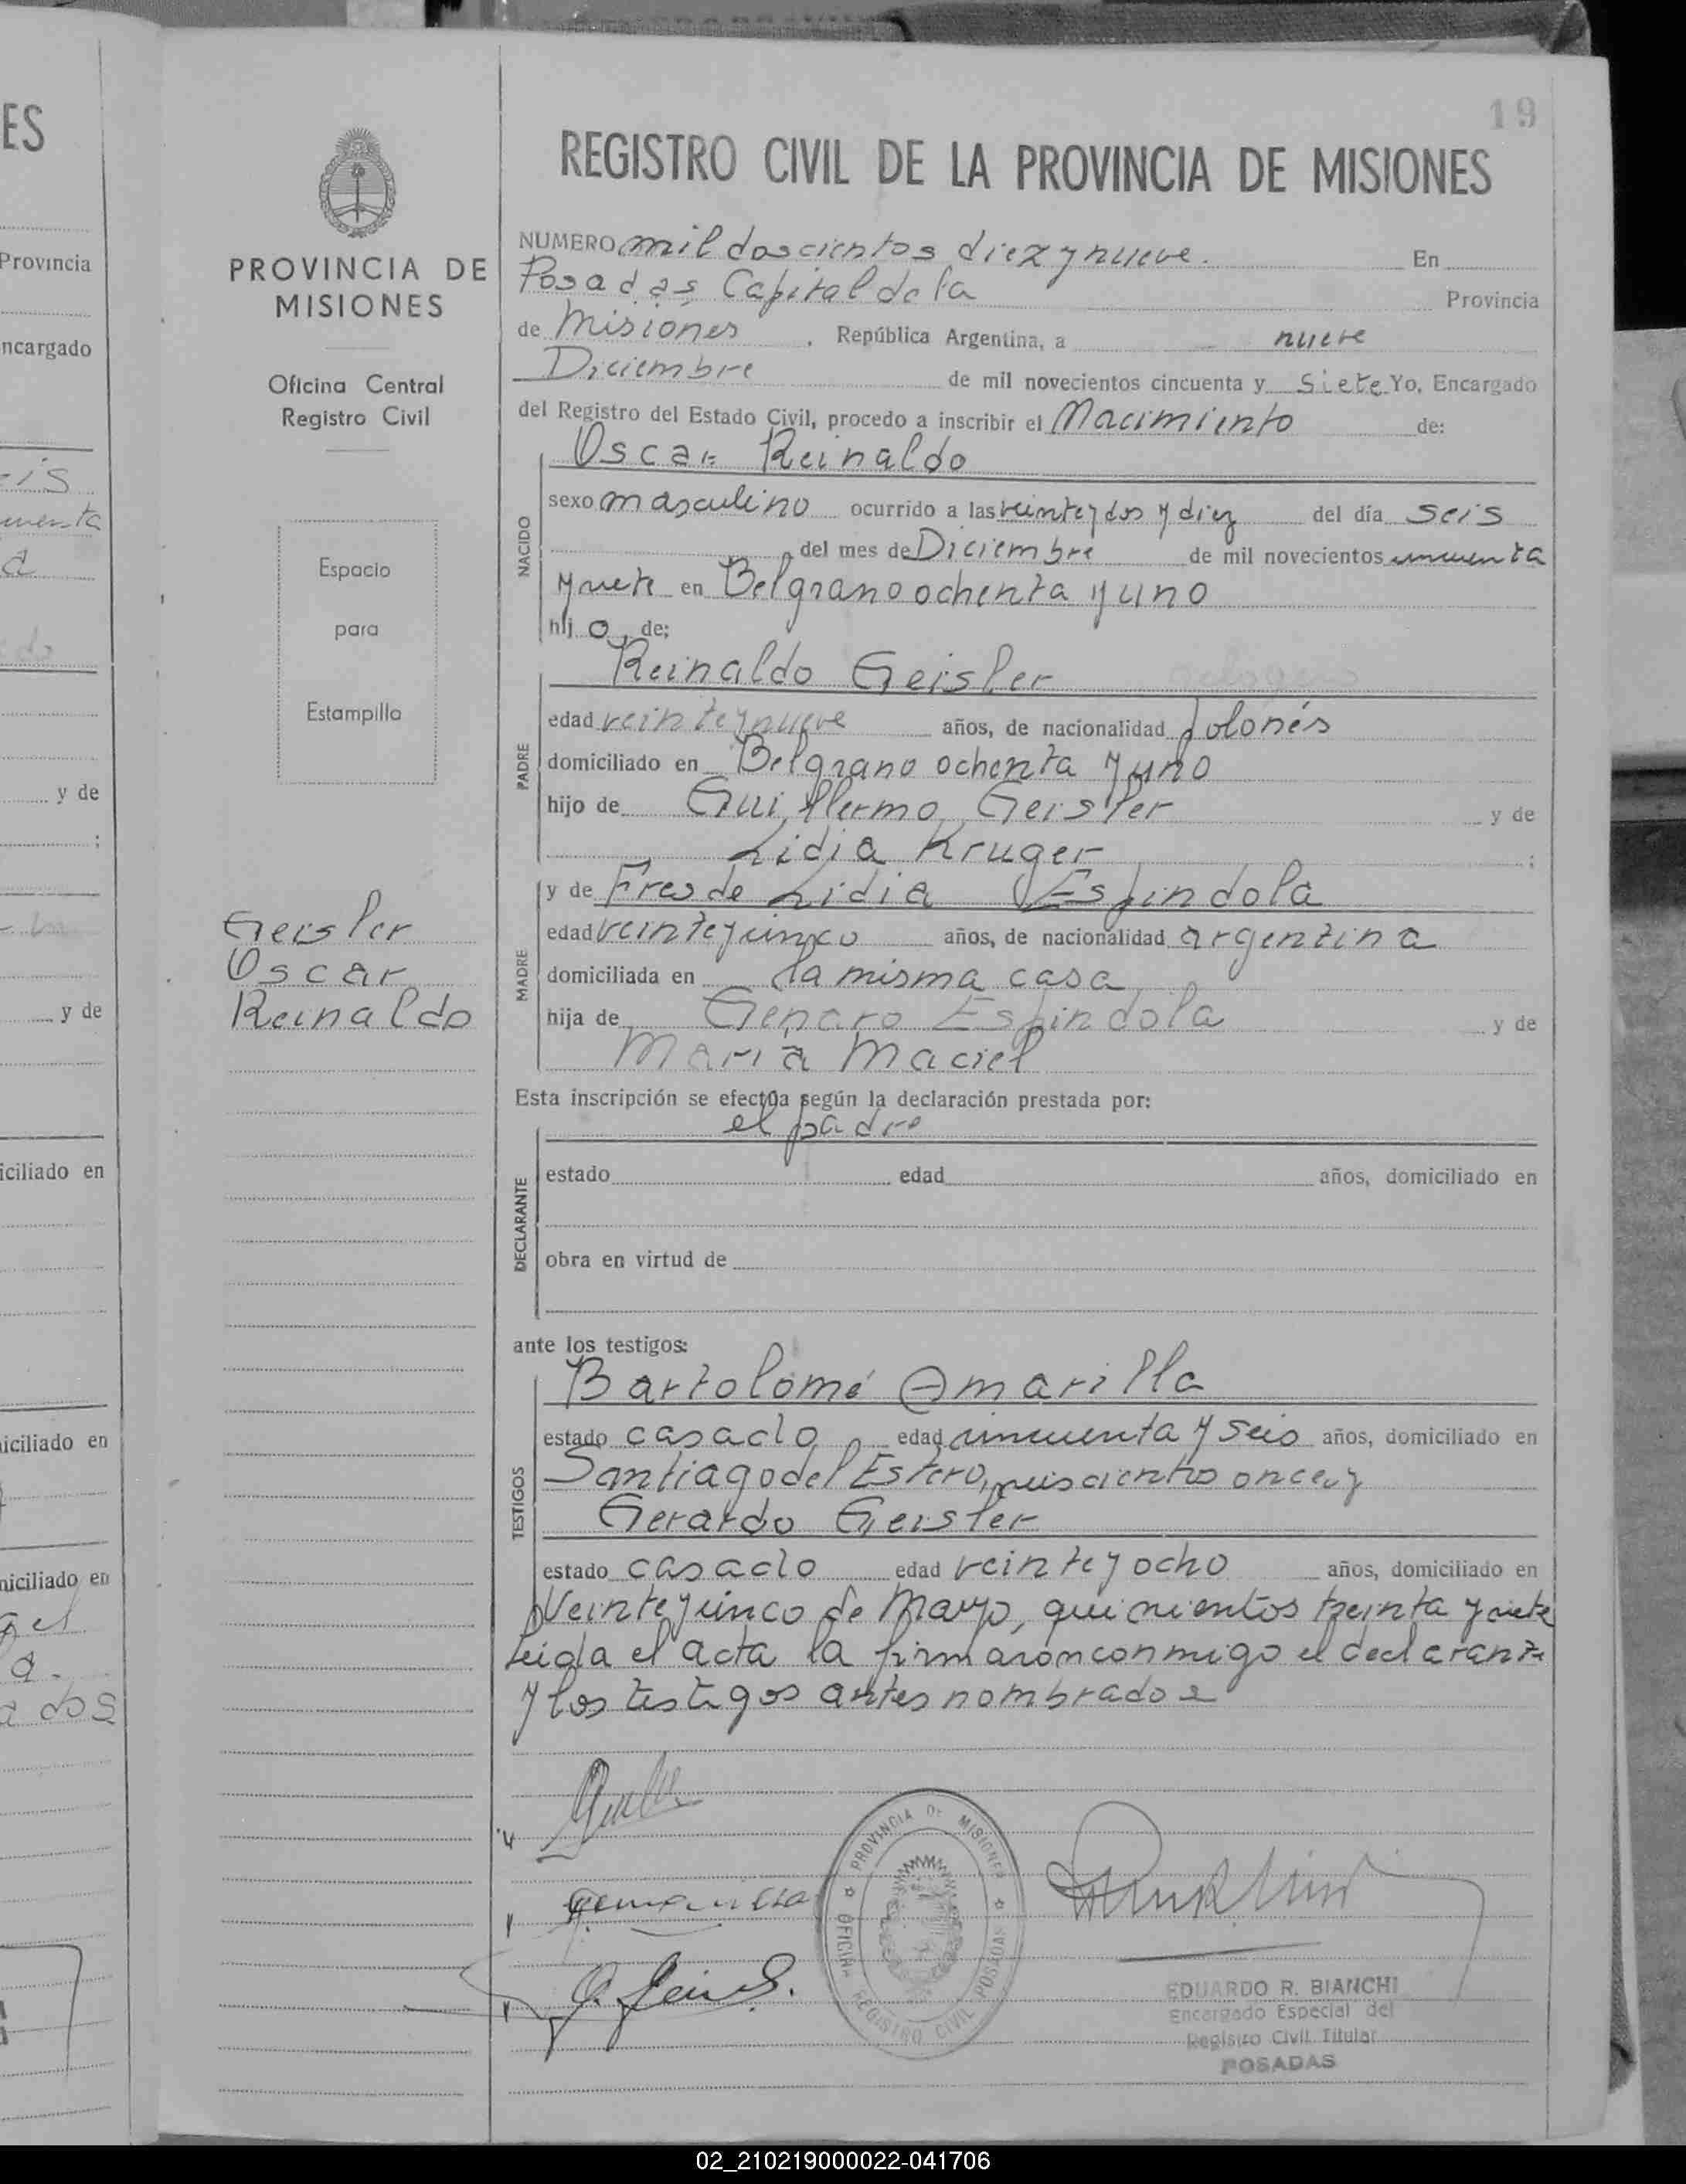 19
REGISTRO CIVIL DE LA PROVINCIA DE MISIONES
PROVINCIA DE
MISIONES
Oficina Central
Registro Civil
Espacio
para
Estampilla
Geisler
Oscar
Reinaldo
NUMERO mil doscientos diez y nueve. En
Posadas Capital de la Provincia
de Misiones, República Argentina, a nueve
Diciembre de mil novecientos cincuenta y Siete Yo, Encargado
del Registro del Estado Civil, procedo a inscribir el Nacimiento de:
Oscar Reinaldo
NACIDO
sexo masculino ocurrido a las veinte y dos y diez del día seis
del mes de Diciembre de mil novecientos cincuenta
y siete en Belgrano ochenta y uno
hijo de;
Reinaldo Geisler
PADRE
edad veinte y nueve años, de nacionalidad polonés
domiciliado en Belgrano ochenta y uno
hijo de Guillermo Geisler y de
Lidia Kruger ;
y de Lidia Espindola
MADRE
edad veinte y cinco años, de nacionalidad argentina
domiciliada en la misma casa
hija de Genaro Espindola y de
Maria Maciel
Esta inscripción se efectúa según la declaración prestada por:
el padre
DECLARANTE
estado edad años, domiciliado en
obra en virtud de
ante los testigos:
Bartolomé Amarilla
TESTIGOS
estado casado edad cincuenta y seis años, domiciliado en
Santiago del Estero, seiscientos once y
Gerardo Geisler
estado casado edad veinte y ocho años, domiciliado en
Veinte y cinco de Mayo, quinientos treinta y siete
Leida el acta la firmaron conmigo el declarante
y los testigos antes nombrados
PROVINCIA DE MISIONES
OFICINA REGISTRO CIVIL POSADAS
EDUARDO R. BIANCHI
Encargado Especial del
Registro Civil Titular
POSADAS
02_210219000022-041706